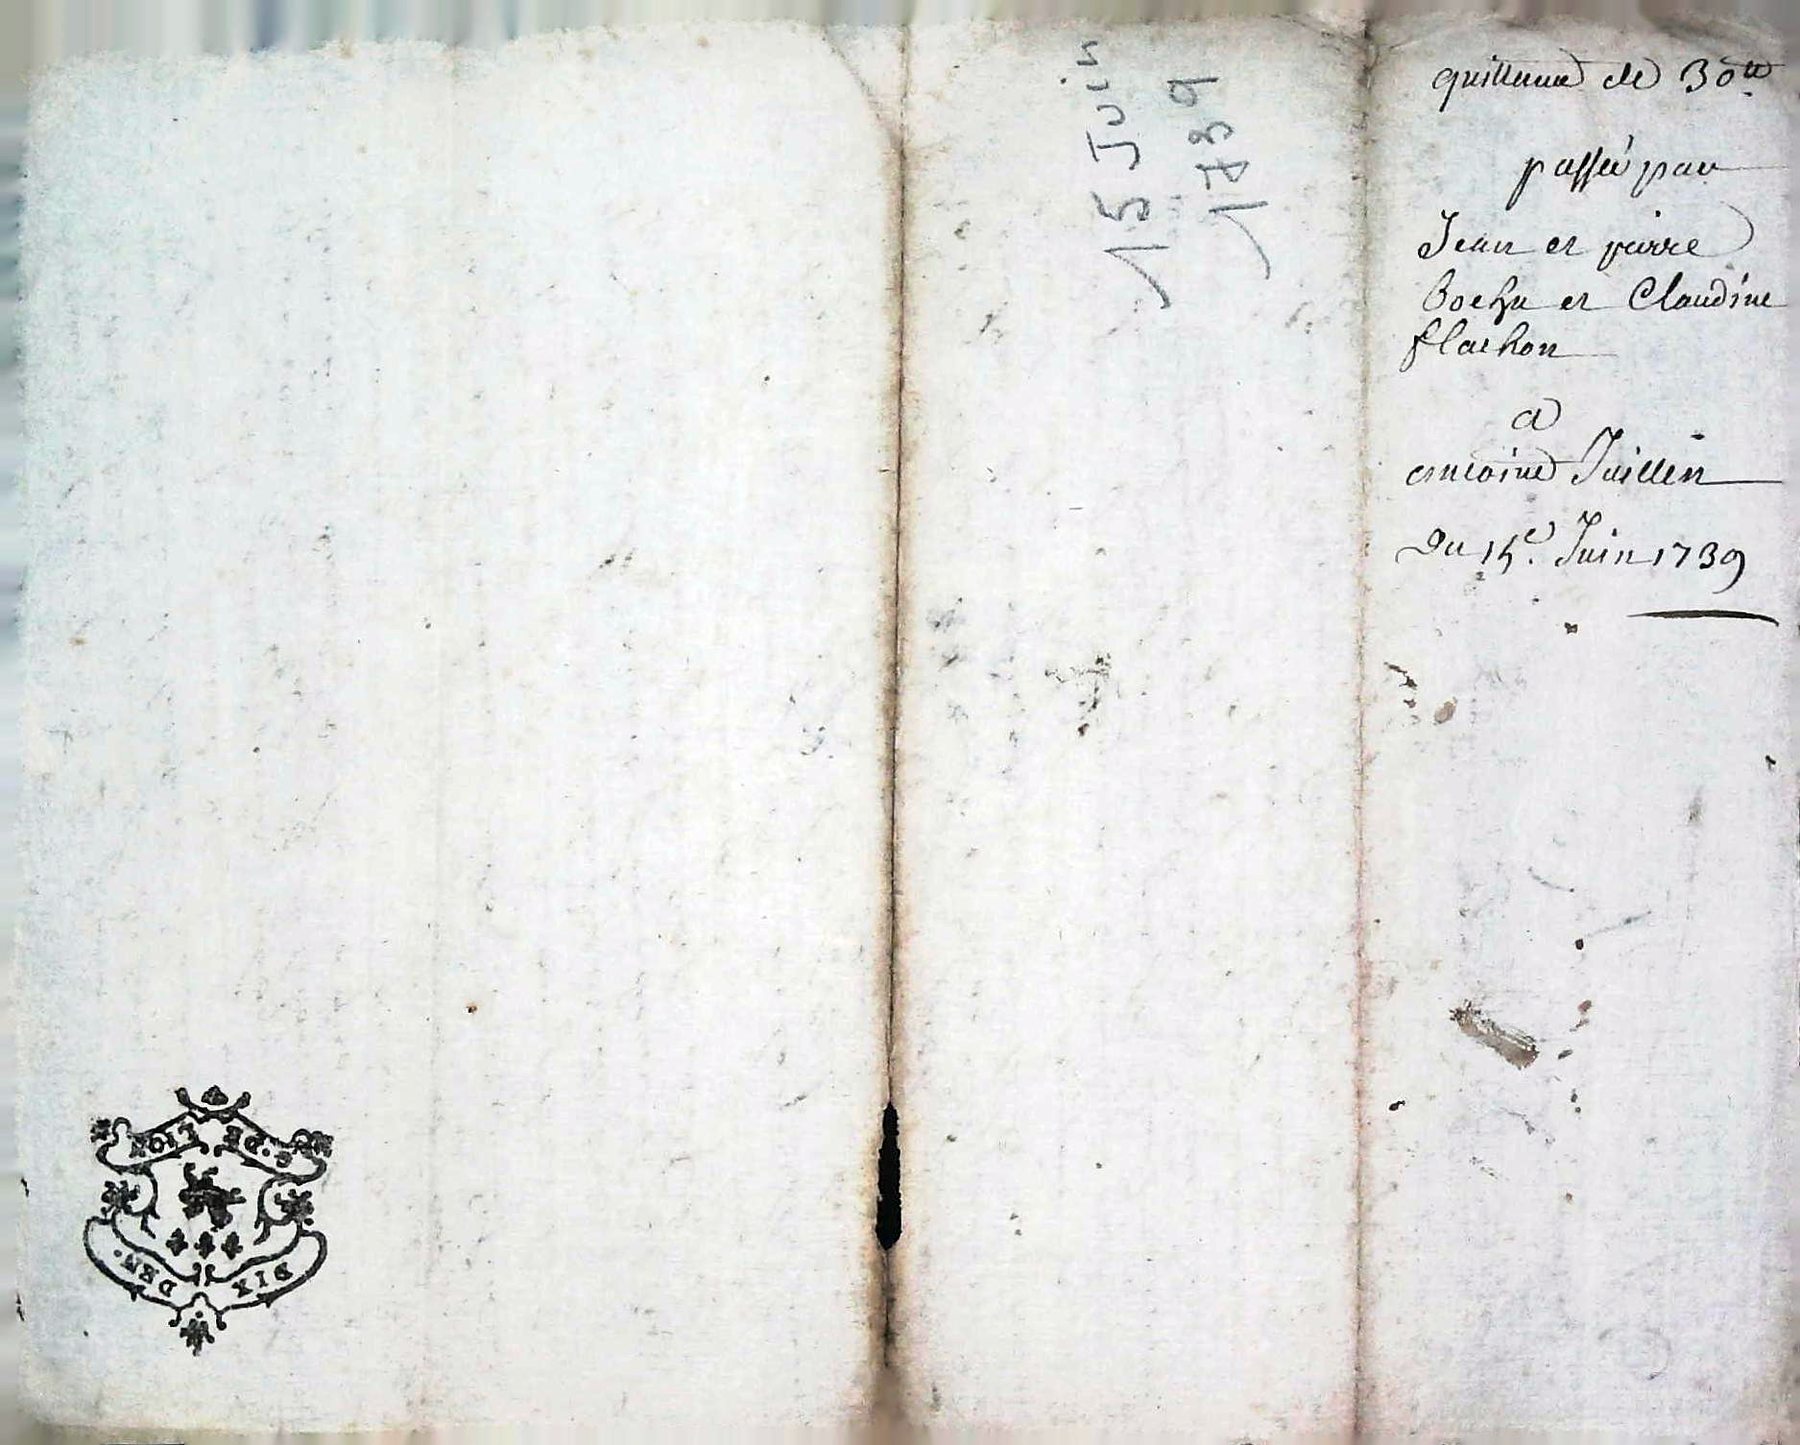 15 Juin
1739
quittance de 30tt
passée par
Jean et pierre
Bochu et Claudine
flachon
a
antoine Juillien
Du 15e. Juin 1739
G. DE LION
DIX DEN.